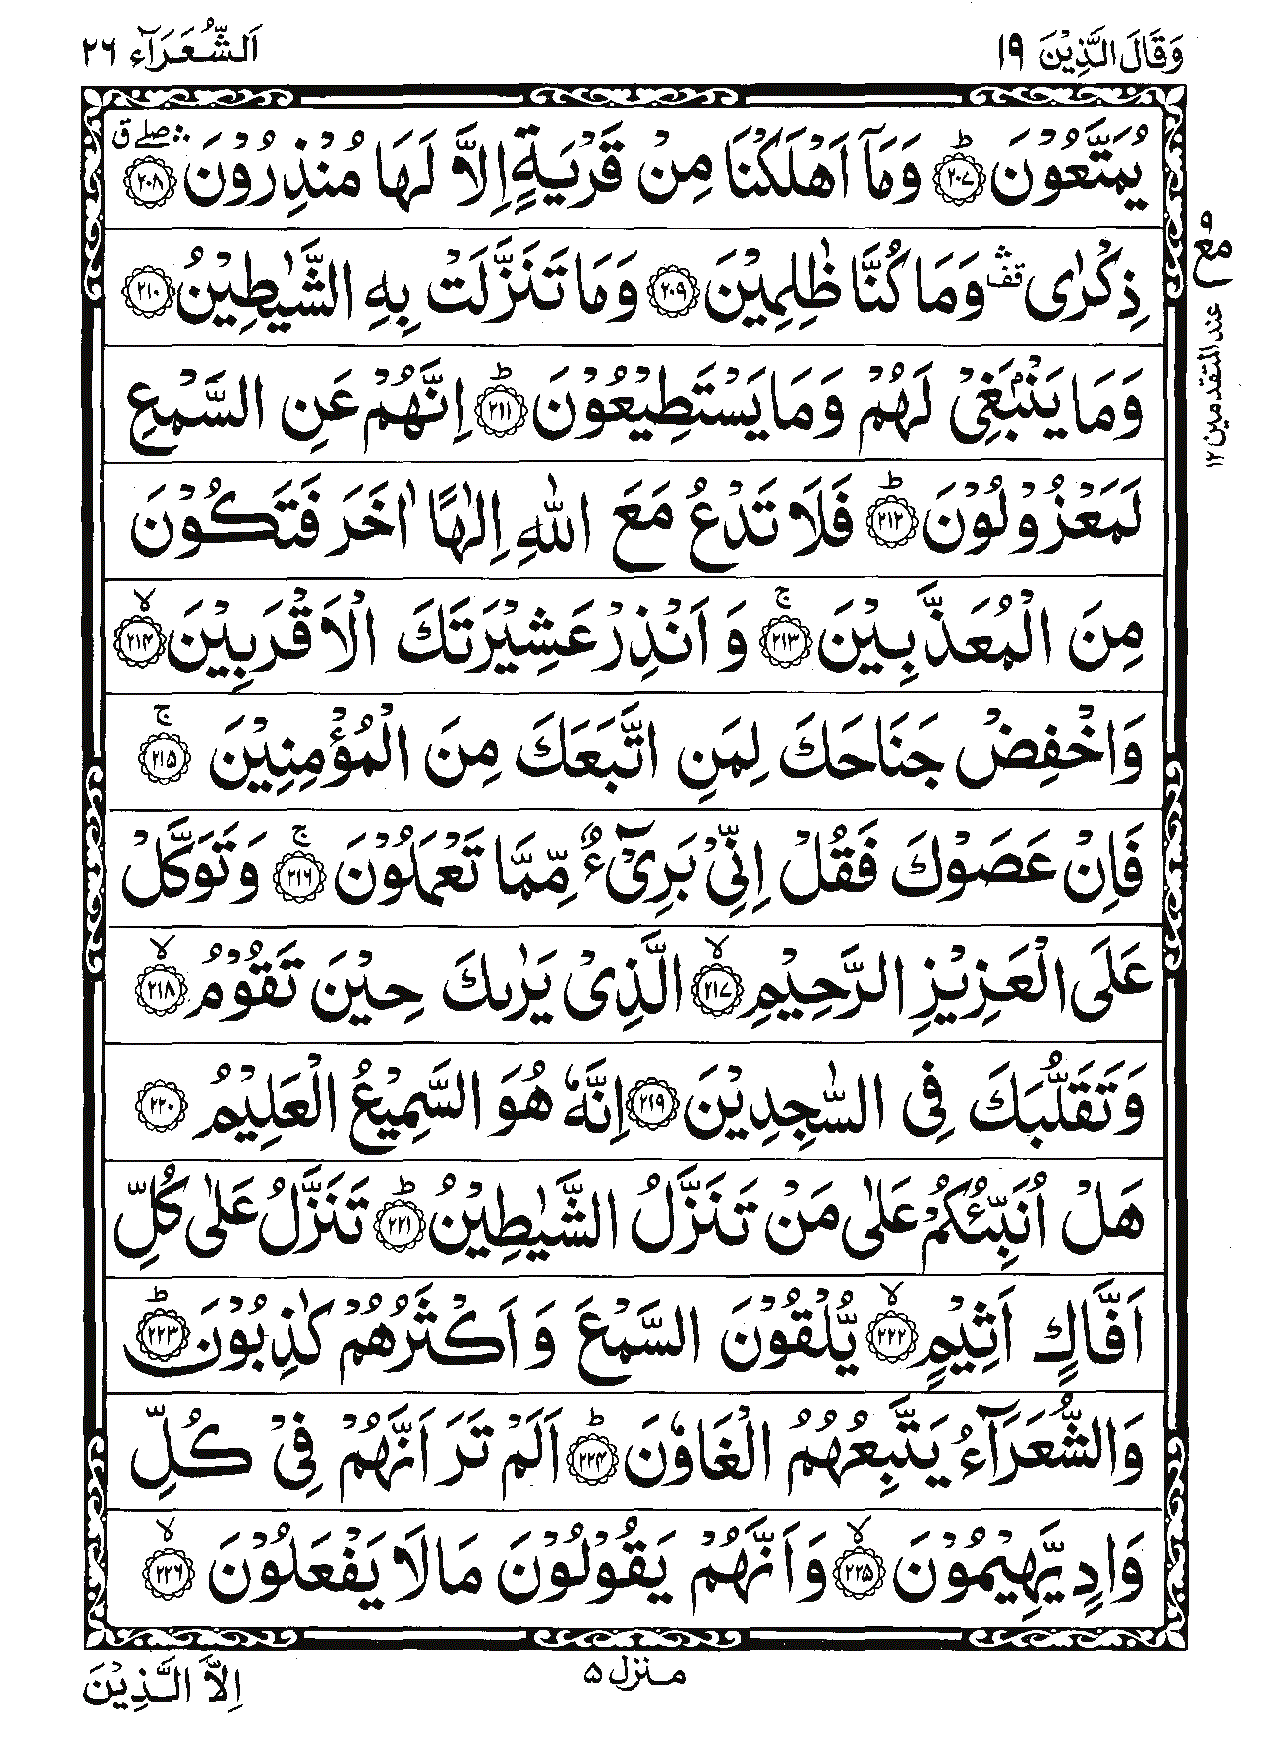 وَقَالَ الَّذِيْنَ ١٩
اَلشُّعَرَآء ٢٦
يُمَتَّعُوْنَ ؕ‏﴿۲۰۷﴾ وَمَاۤ اَهْلَكْنَا مِنْ قَرْيَةٍ اِلَّا لَهَا مُنْذِرُوْنَ ‏﴿۲۰۸﴾ ۛۖ ق
ذِكْرٰى قف وَمَا كُنَّا ظٰلِمِيْنَ ﴿۲۰۹﴾ وَمَا تَنَزَّلَتْ بِهِ الشَّيٰطِيْنُ ﴿۲۱۰﴾
وَمَا يَنْۢبَغِيْ لَهُمْ وَمَا يَسْتَطِيْعُوْنَ ؕ﴿۲۱۱﴾ اِنَّهُمْ عَنِ السَّمْعِ
لَمَعْزُوْلُوْنَ ؕ﴿۲۱۲﴾ فَلَا تَدْعُ مَعَ اللّٰهِ اِلٰهًا اٰخَرَ فَتَكُوْنَ
مِنَ الْمُعَذَّبِيْنَ ۚ﴿۲۱۳﴾ وَ اَنْذِرْ عَشِيْرَتَكَ الْاَقْرَبِيْنَ ۙ﴿۲۱۴﴾
وَاخْفِضْ جَنَاحَكَ لِمَنِ اتَّبَعَكَ مِنَ الْمُؤْمِنِيْنَ ۚ﴿۲۱۵﴾
فَاِنْ عَصَوْكَ فَقُلْ اِنِّيْ بَرِيْٓءٌ مِّمَّا تَعْمَلُوْنَ ۚ﴿۲۱۶﴾ وَتَوَكَّلْ
عَلَى الْعَزِيْزِ الرَّحِيْمِ ۙ﴿۲۱۷﴾ الَّذِيْ يَرٰىكَ حِيْنَ تَقُوْمُ ۙ﴿۲۱۸﴾
وَتَقَلُّبَكَ فِى السّٰجِدِيْنَ ﴿۲۱۹﴾ اِنَّهٗ هُوَ السَّمِيْعُ الْعَلِيْمُ ﴿۲۲۰﴾
هَلْ اُنَبِّئُكُمْ عَلٰى مَنْ تَنَزَّلُ الشَّيٰطِيْنُ ؕ﴿۲۲۱﴾ تَنَزَّلُ عَلٰى كُلِّ
اَفَّاكٍ اَثِيْمٍ ۙ﴿۲۲۲﴾ يُّلْقُوْنَ السَّمْعَ وَ اَكْثَرُهُمْ كٰذِبُوْنَ ؕ﴿۲۲۳﴾
وَالشُّعَرَآءُ يَتَّبِعُهُمُ الْغَاوٗنَ ؕ﴿۲۲۴﴾ اَلَمْ تَرَ اَنَّهُمْ فِيْ كُلِّ
وَادٍ يَّهِيْمُوْنَ ۙ﴿۲۲۵﴾ وَاَنَّهُمْ يَقُوْلُوْنَ مَا لَا يَفْعَلُوْنَ ۙ﴿۲۲۶﴾
مع
عند المتقدمین ۱۲
منزل ۵
اِلَّا الَّذِيْنَ